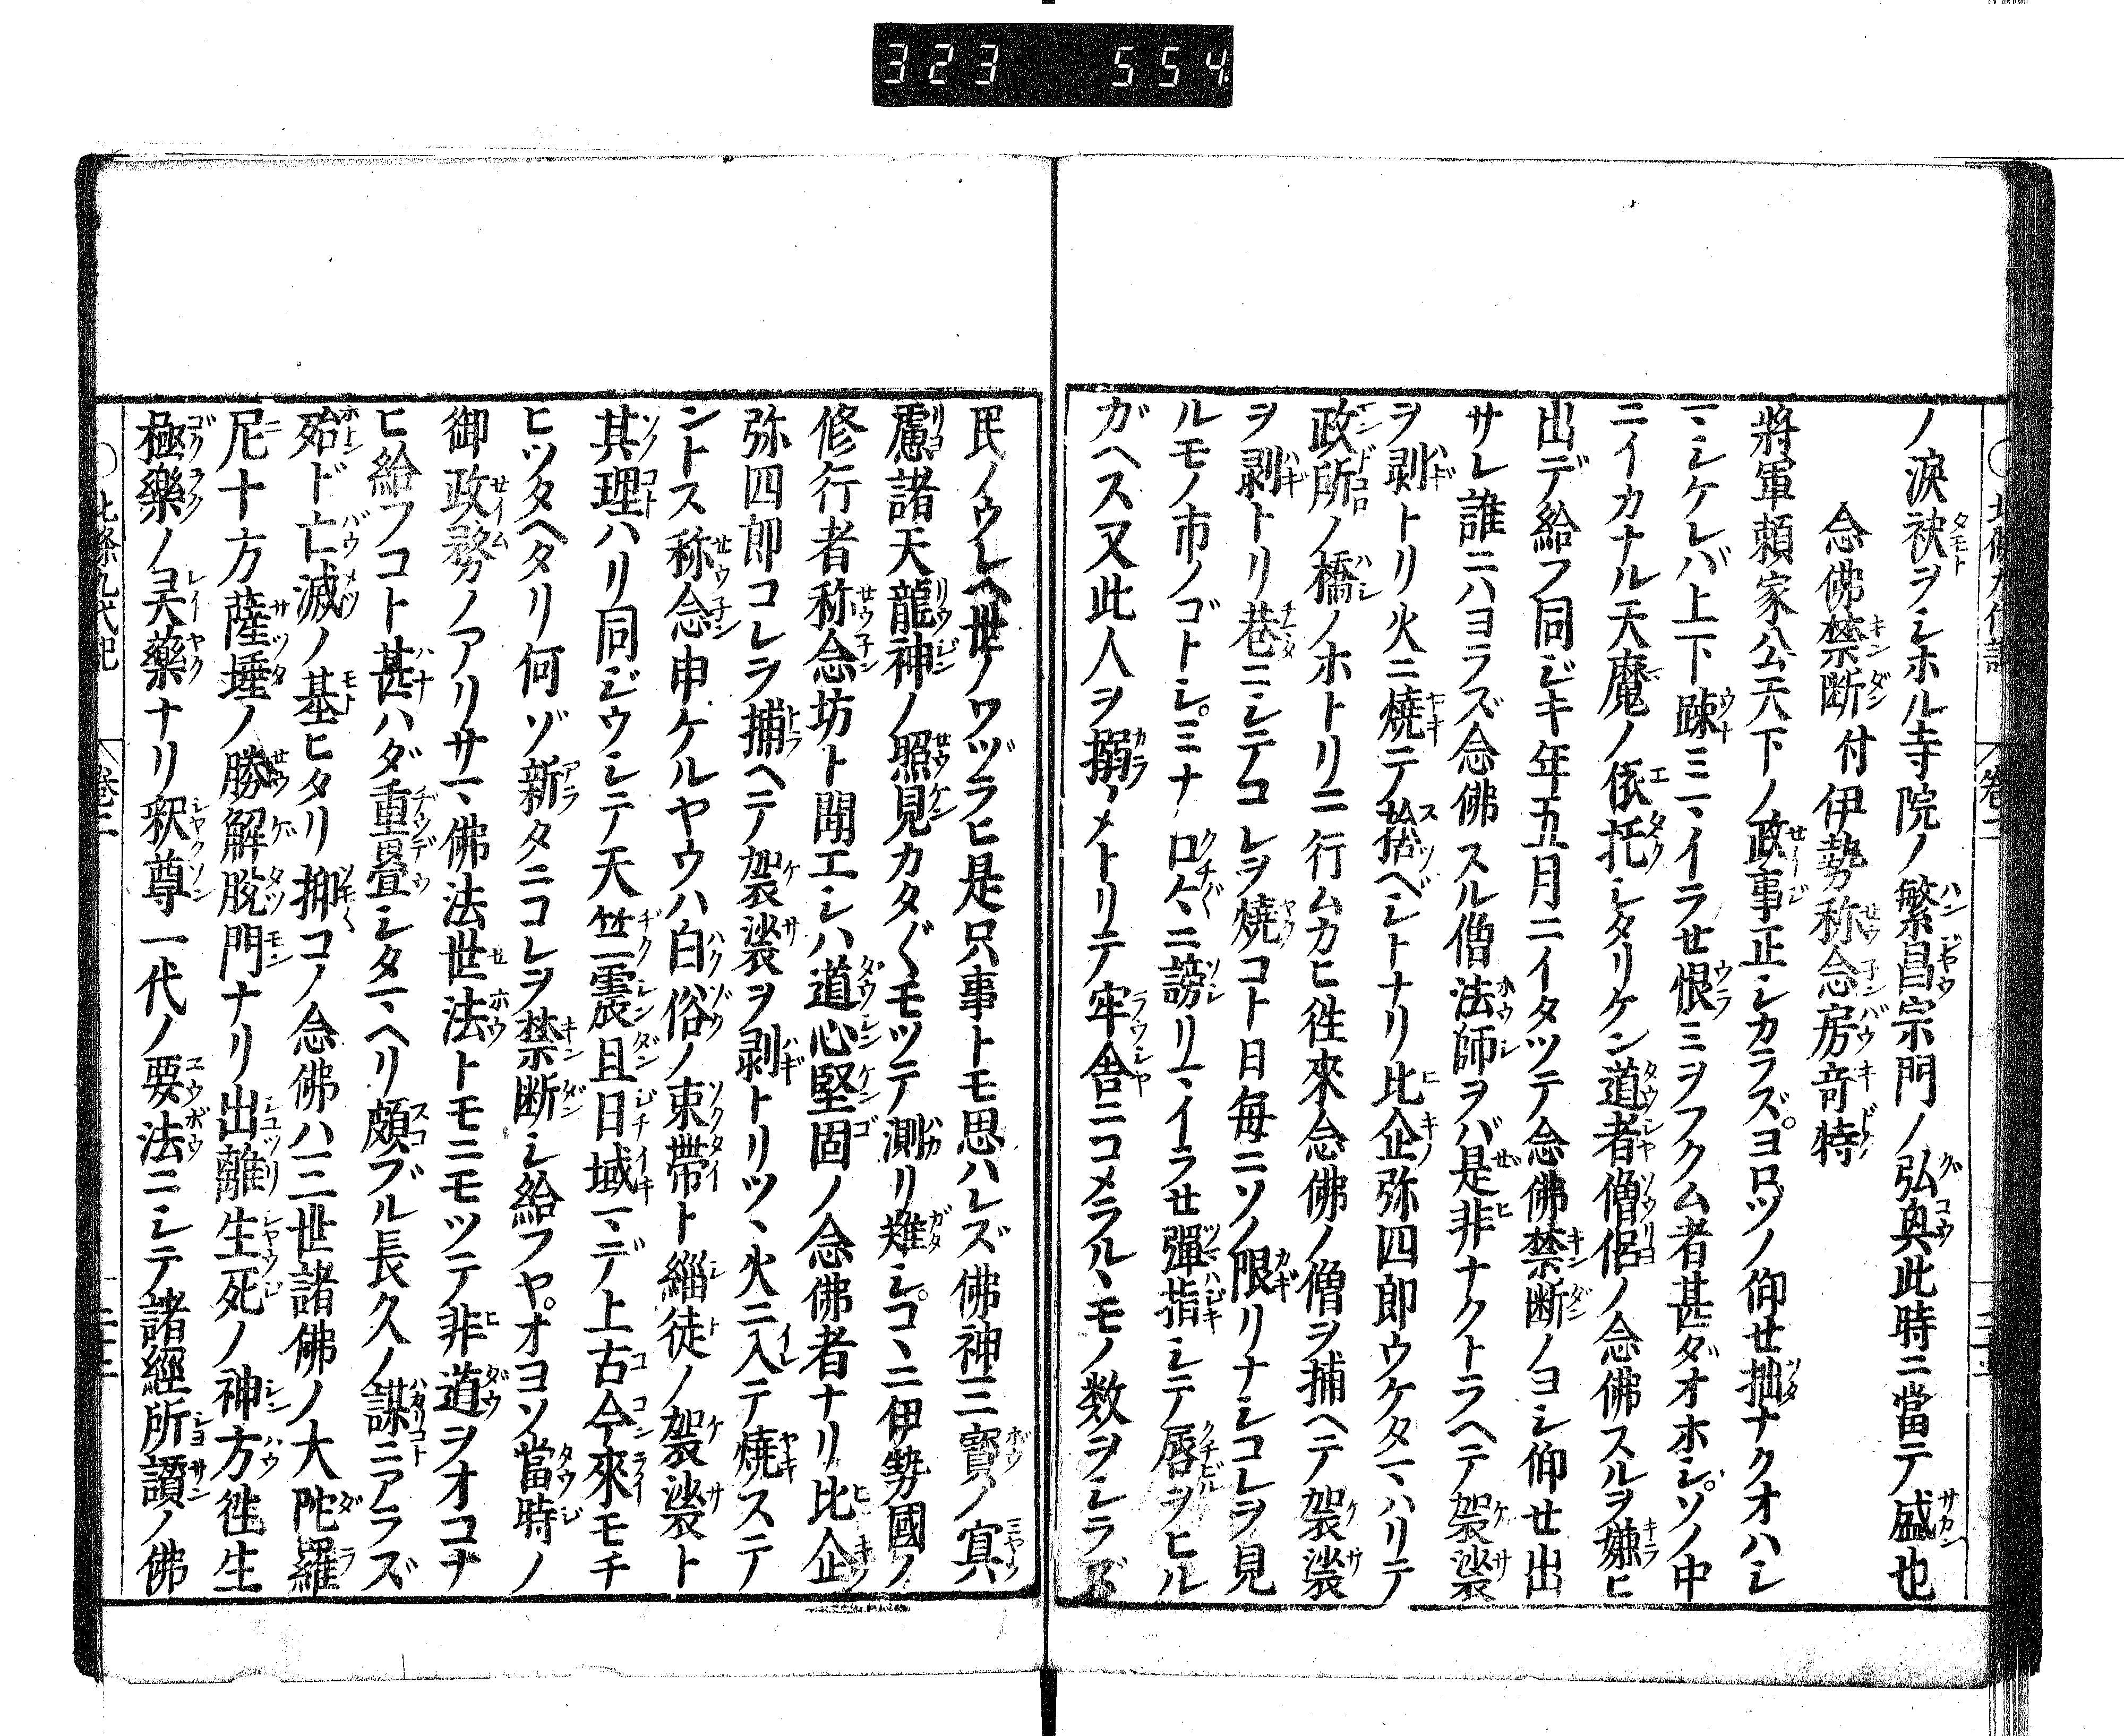 323 554
ノ涙袂ヲシホル寺院ノ繁昌宗門ノ弘奥此時ニ當テ盛也
念佛禁断付伊勢称念房竒特
將軍頼家公天下ノ政事正シカラズ。ヨロヅノ仰せ拙ナクオハシ
マシケレバ上下踈ミマイラせ恨ミヲフクム者甚ダオホシ。ソノ中
ニイカナル天魔ノ依托シタリケン道者僧侶ノ念佛スルヲ嫌ヒ
出デ給フ同ジキ年五月ニイタツテ念佛禁断ノヨシ仰せ出
サレ誰ニハヨラズ念佛スル僧法師ヲバ是非ナクトラヘテ袈裟
ヲ剥トリ火ニ燒テ捨ベシトナリ比企弥四郎ウケタマハリテ
政所ノ橋ノホトリニ行ムカヒ徃來念佛ノ僧ヲ捕ヘテ袈裟
ヲ剥トリ巷ニシテコレヲ燒コト日毎ニソノ限リナシコレヲ見
ルモノ市ノゴトシ。ミナ口〻ニ謗リマイラせ彈指シテ唇ヲヒル
ガヘス又此人ヲ搦メトリテ牢舎ニコメラルヽモノ数ヲシラズ
民ノウレヘ世ノワヅラヒ是只事トモ思ハレズ佛神三寳ノ寘
慮諸天龍神ノ照見カタ〲モツテ測リ難シ。コヽニ伊勢國ノ
修行者称念坊ト聞エシハ道心堅固ノ念佛者ナリ比企
弥四郎コレヲ捕ヘテ袈裟ヲ剥トリツヽ火ニ入テ燒ステ
ントス称念申ケルヤウハ白俗ノ束帶ト緇徒ノ袈裟ト
其理ハリ同ジウシテ天竺震且日域マデ上古今來モチ
ヒツタヘタリ何ゾ新タニコレヲ禁断シ給フヤ。オヨソ當時ノ
御政務ノアリサマ佛法世法トモニモツテ非道ヲオコナ
ヒ給フコト甚ハダ重疊シタマヘリ頗ブル長久ノ謀ニアラズ
殆ド亡滅ノ基ヒタリ抑コノ念佛ハ三世諸佛ノ大陀羅
尼十方薩埵ノ勝解脱門ナリ出離生死ノ神方徃生
極樂ノ灵藥ナリ釈尊一代ノ要法ニシテ諸經所讃ノ佛
〇北條九代記 巻二